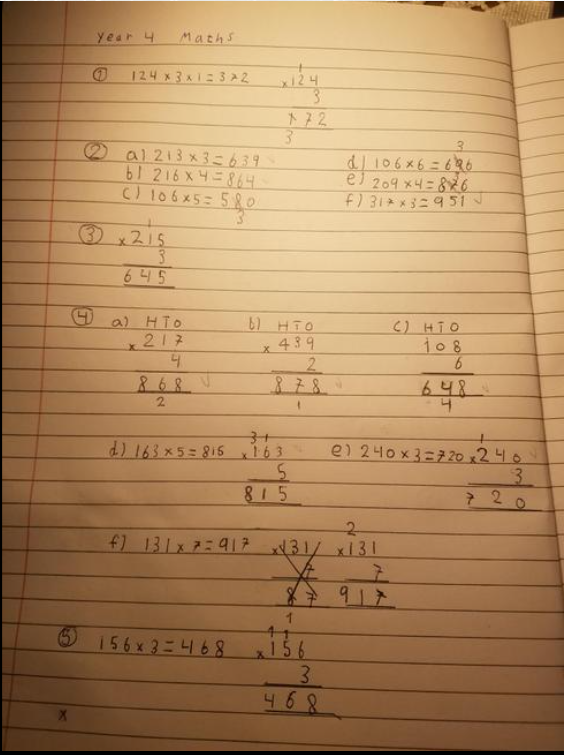 Year 4 Maths
① 124 × 3 × 1 = 372
1
× 124
3
172
3
② a) 213 × 3 = 639
b) 216 × 4 = 864
c) 106 × 5 = 580
3
3
d) 106 × 6 = 6
e) 209 × 4 = 8
f) 317 × 3 = 951
③
1
× 215
3
645
④ a) HTO
× 217
4
868
2
b) HTO
× 439
2
878
1
c) HTO
108
6
648
4
d) 163 × 5 = 815
31
× 163
5
815
e) 240 × 3 = 720
1
× 240
3
720
f) 131 × 7 = 917
× 131
7
87
1
2
× 131
7
917
⑤ 156 × 3 = 468
11
× 156
3
468
x